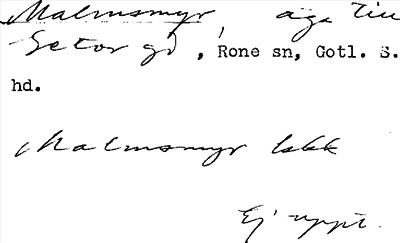 Malmsmyr, äga till
Setor gd, Rone sn, Gotl. S.
hd.
Malmsmyr lskk
Ej uppt.